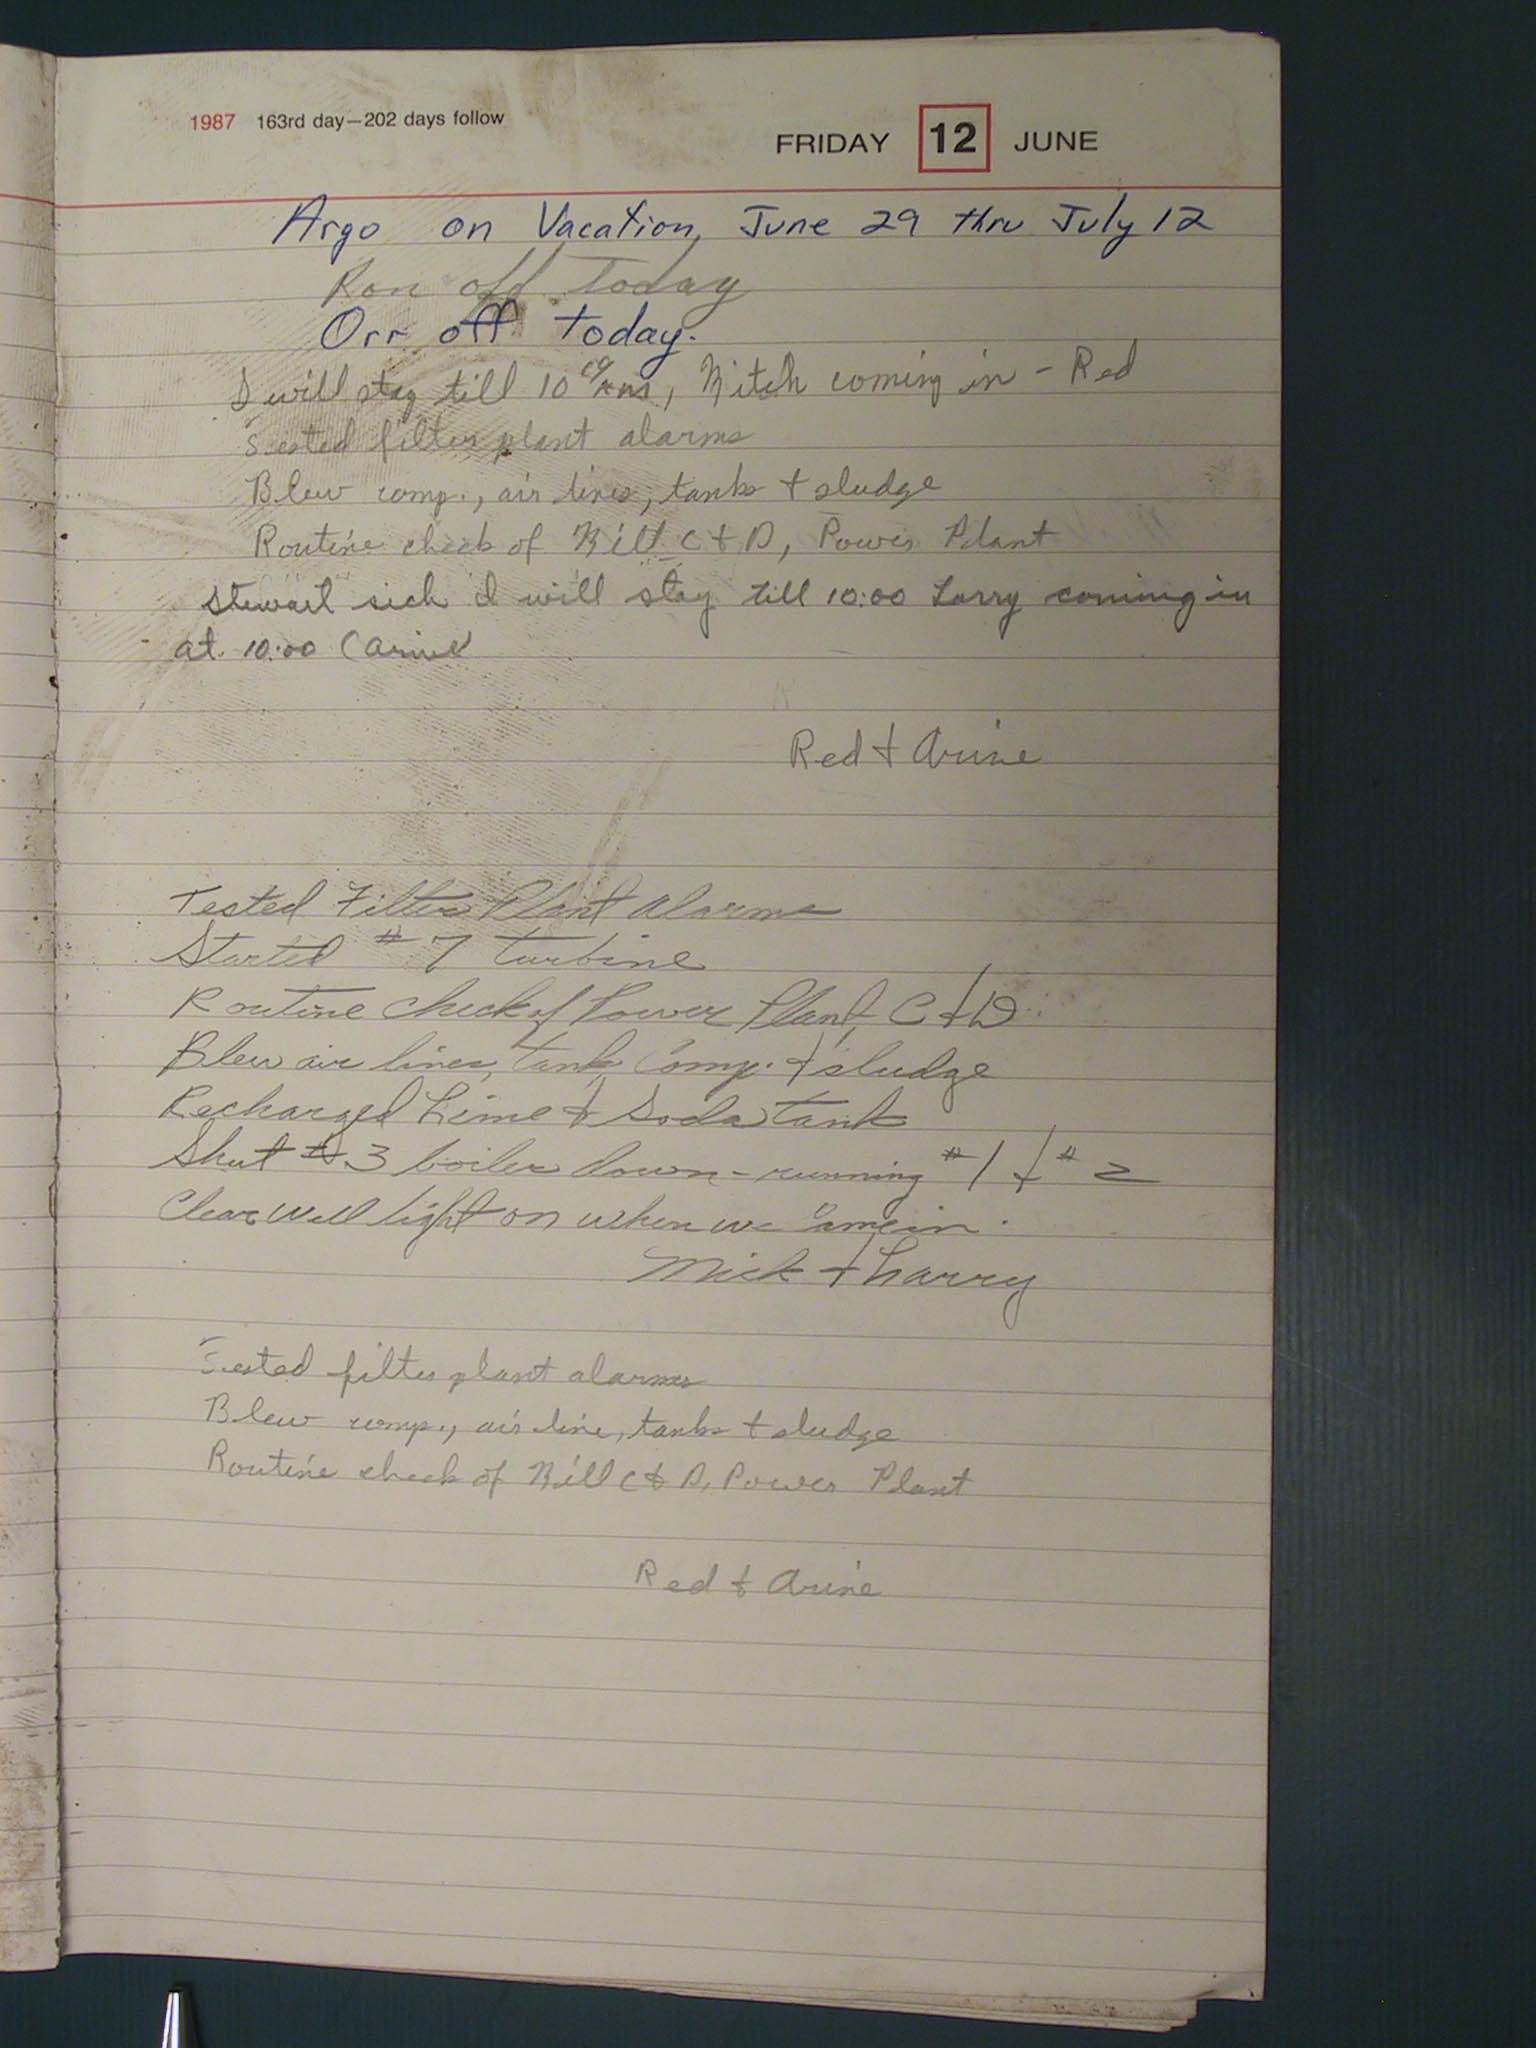 1987 163rd day—202 days follow
FRIDAY 12 JUNE
Argo on Vacation, June 29 thru July 12
Ron off Today
Orr off today.
I will stay till 10 coming in - Red
Tested filter plant alarms
Blew comp., air lines, tanks + sludge
Routine check of Mill C + D, Power Plant
Stewart sick I will stay till 10:00 Larry coming in
at 10:00 (Arine
Red + Arine
Tested Filter Plant Alarms
Started #7 turbine
Routine check of Power Plant, C + D.
Blew air lines, tank, Comp. + sludge
Recharged Lime + Soda tank
Shut #3 boiler down - running #1 + #2
Clear Well light on when we came in.
Mick + Larry
Tested filter plant alarms
Blew comp., air line, tanks + sludge
Routine check of Mill C + D, Power Plant
Red + Arine